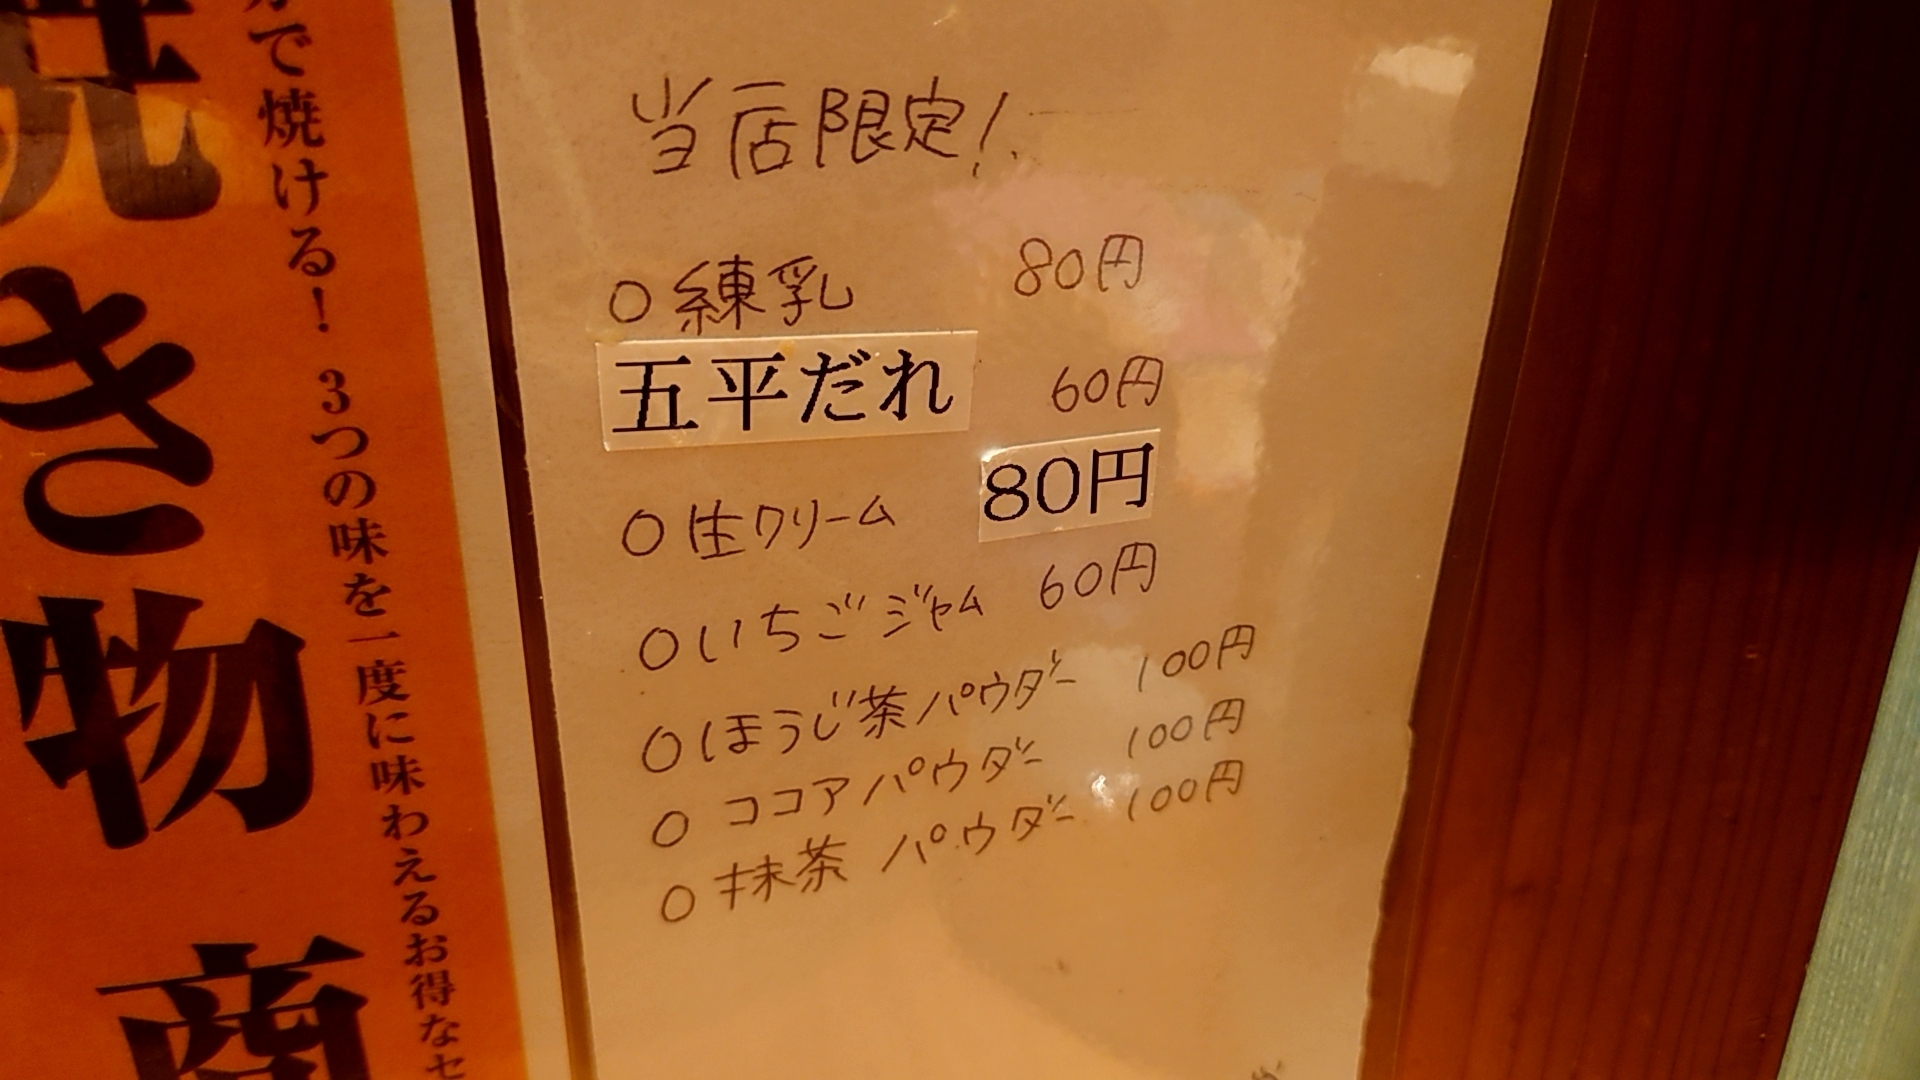 当店限定！
○練乳 80円
五平だれ 60円
○生クリーム 80円
○いちごジャム 60円
○ほうじ茶パウダー 100円
○ココアパウダー 100円
○抹茶パウダー 100円
で焼ける！ 3つの味を一度に味わえるお得なセ
焼き物 商